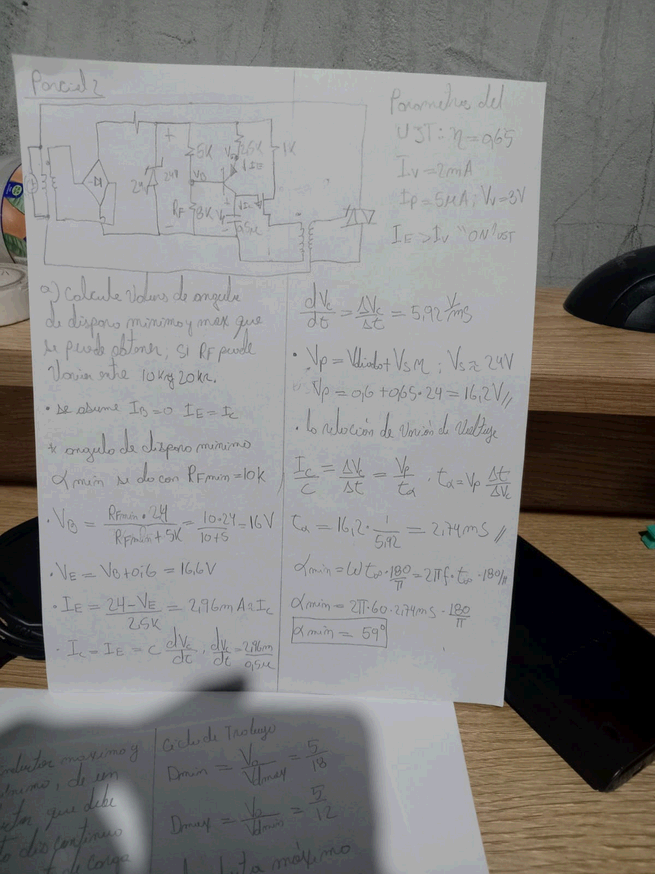 Parcial 2
+
5K
2,5K
1K
24V
VB
RF
0,5µ
-
Parametros del
UJT: η = 0,65
Iv = 2mA
Ip = 5µA; Vv = 3V
IE > Iv "ON" UJT
a) Calcule Valores de angulo
de disparo minimo y max que
se puede obtener, si RF puede
Variar entre 10k y 20kΩ.
• se asume IB=0 IE=Ic
* angulo de disparo minimo
α min se da con RFmin=10k
• VB = RFmin • 24 / RFmin + 5K = 10•24 / 10+5 = 16V
• VE = VB+0,6 = 16,6V
• IE = 24-VE / 2,5K = 2,96mA = Ic
• Ic = IE = C dVc/dt . dVc/dt = 2,96m / 0,5µ
dVc/dt = ΔVc/Δt = 5,92 V/ms
• Vp = Vdiodo + Vs η ; Vs = 24V
Vp = 0,6 + 0,65•24 = 16,2V //
• la relación de Voltaje
Ic/C = ΔVc/Δt = Vp/ta • ta = Vp Δt/ΔVc
ta = 16,2 • 1/5,92 = 2,74mS //
αmin = ωt • 180/π = 2πf • t • 180/π
αmin = 2π•60•2,74ms • 180/π
αmin = 59°
maximo y
de un
que debe
discontinuo
de carga
Ciclo de Trabajo
Dmin = Vo/Vdmax = 5/18
Dmax = Vo/Vdmin = 5/12
máximo